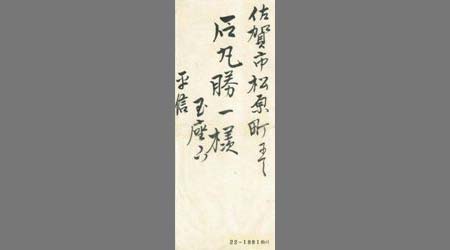 佐賀市松原町
石丸勝一様
玉座下
平信
22-1881